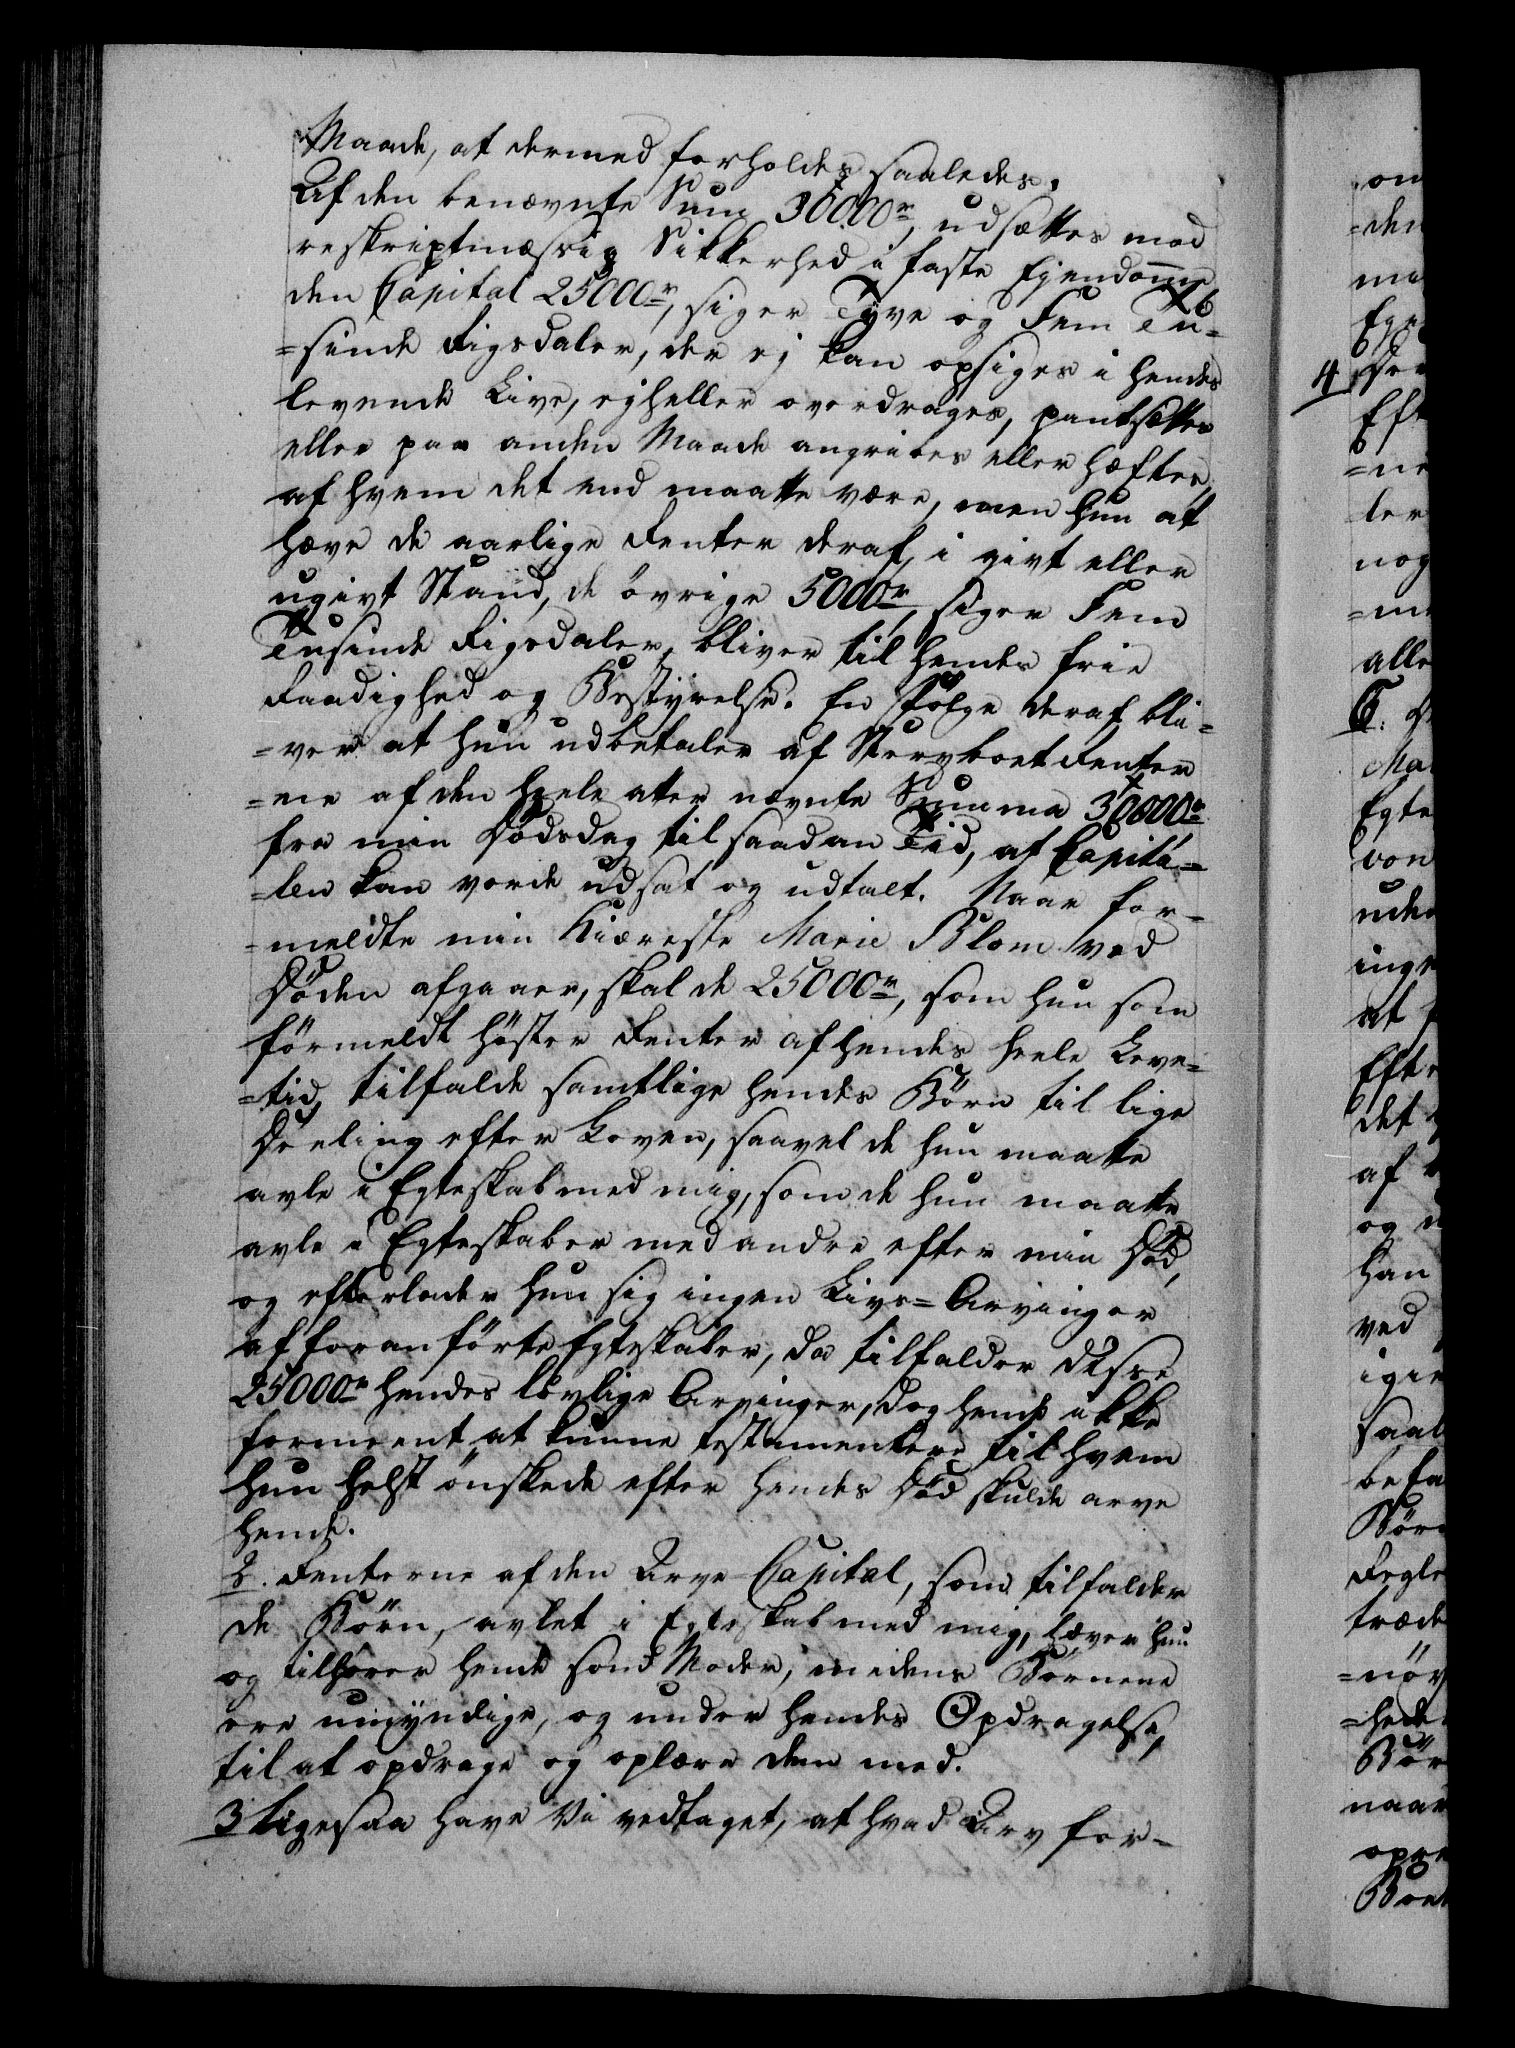 Maade, at dermed forholdes saaledes.
Af den benævnte Sum 30000 r, udsættes mod
reskriptmæssig Sikkerhed i faste Ejendomme
den Capital 25000 r, siger Tyve og Fem Tu-
=sinde Rigsdaler, der ej kan opsiges i hendes
levende Live, ejheller overdrages, pantsættes
eller paa anden Maade angribes eller hæftes,
af hvem det end maatte være, men hun at
hæve de aarlige Renter deraf, i givt eller
ugivt Stand, de övrige 5000 r, siger Fem
Tusinde Rigsdaler, bliver til hendes frie
Raadighed og Bestyrelse. En Følge deraf bli-
=ver at hun udbetales af Sterboet Renter
=ne af den heele atter nævnte Summa 30000 r
fra min Dödsdag til saadan Tid, at Capita-
=len kan vorde udsat og udtalt. Naar for-
=meldte min Kiæreste Marie Blom ved
Döden afgaaer, skal de 25000 r, som hun som
förmeldt höster Renter af hendes heele Leve-
=tid, tilfalde samtlige hendes Börn til lige
Deeling efter Loven, saavel de hun maatte
avle i Egteskab med mig, som de hun maatte
avle i Egteskaber med andre efter min Död,
og efterlader hun sig ingen Livs=Arvinger
af foranförte Egteskaber, da tilfalder disse
25000 r hendes lovlige Arvinger, dog hende ikke
formeent at kunne testamentere til hvem
hun helst önskede efter hendes Död skulde arve
hende.
2. Renterne af den Arve Capital, som tilfalder
de Börn, avlet i Egteskab med mig, hæver hun
og tilhører hende som Moder, imidens Börnene
ere umyndige, og under hendes Opdragelse,
til at opdrage og oplære dem med.
3 Ligesaa have Vi vedtaget, at hvad Arv for-
4